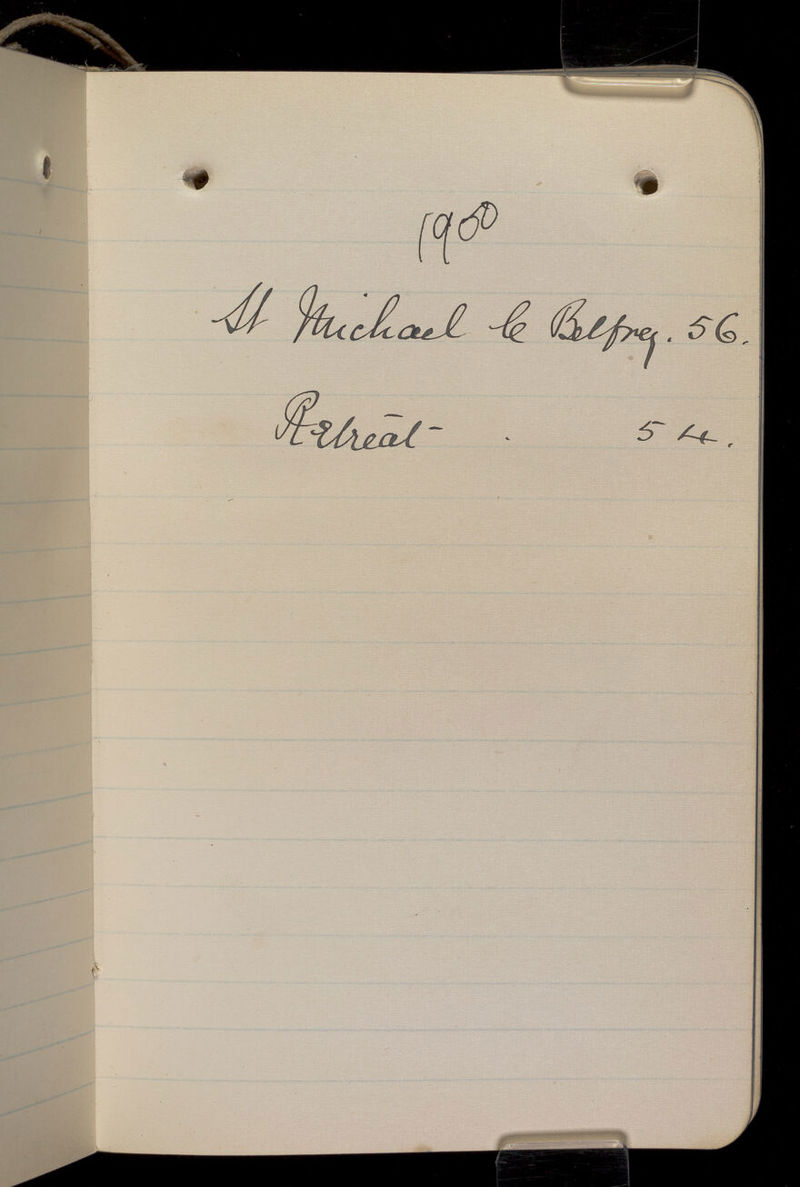 1900
St Michael le Belfrey. 56.
Retreat - . 54.